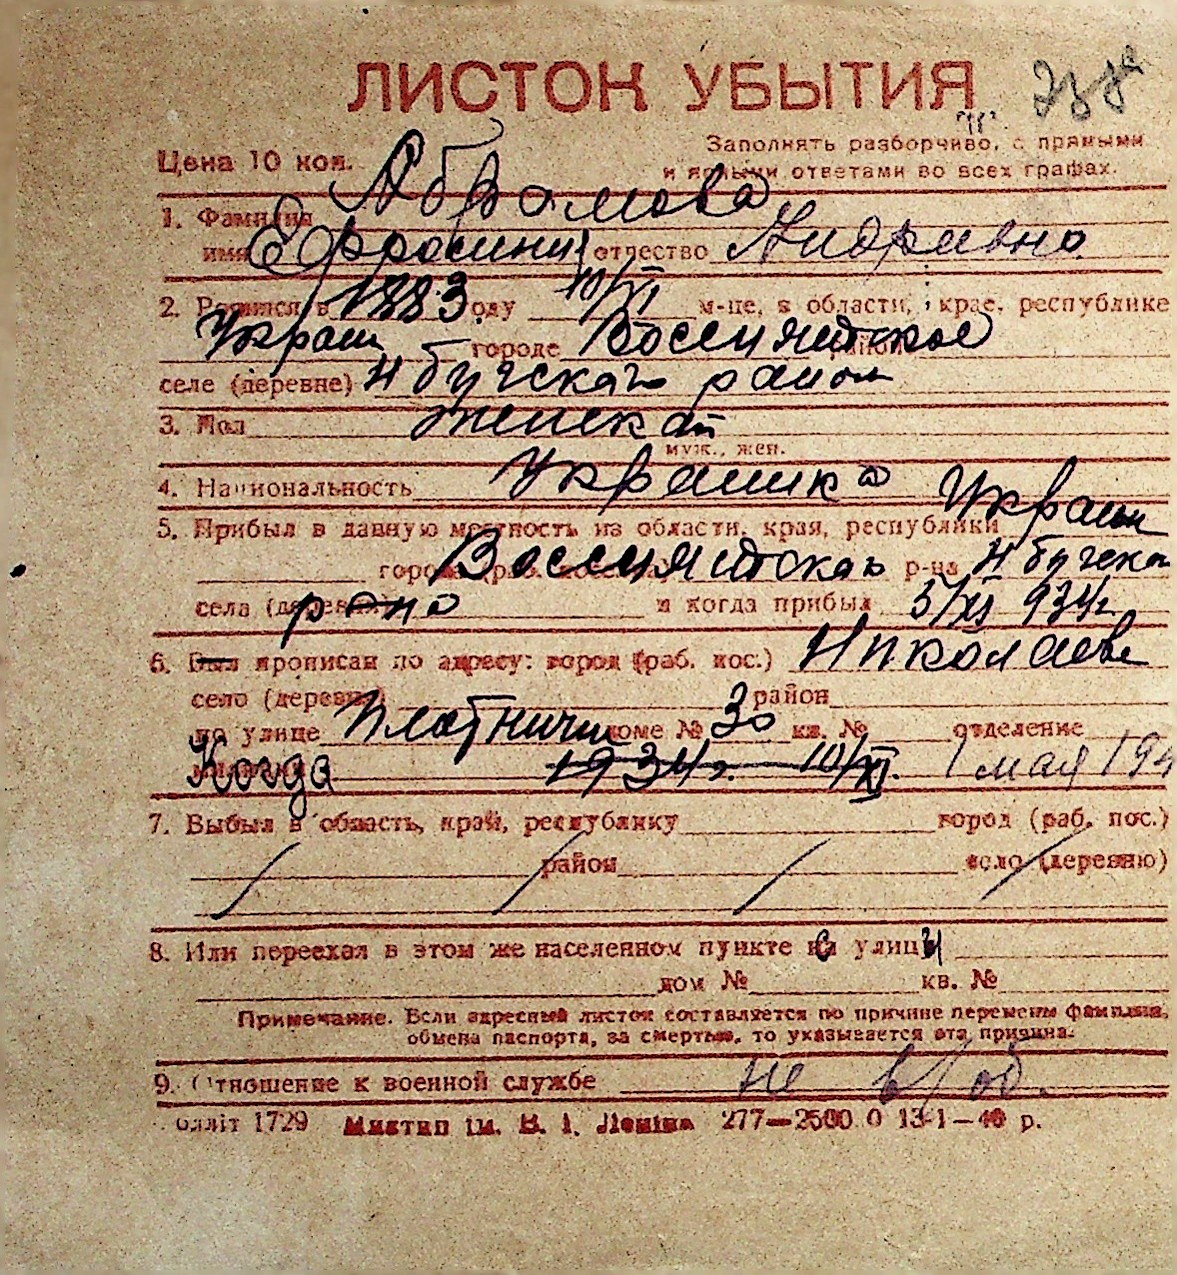 ЛИСТОК УБЫТИЯ
Цена 10 коп.
Заполнять разборчиво, с прямыми
и ясными ответами во всех графах.
1. Фамилия Абрамова
имя Ефросиния отчество Андравно
2. Родился в 1883 году 10/VI м-це, в области, крае, республике
Украин городе Воссиятское районе
селе (деревне) Н бугскаго район
3. Пол женская
муж., жен.
4. Национальность Украинка
5. Прибыл в данную местность из области, края, республики Украин
города (раб. поселка) Воссиятскаь р-на Н бугска
села (деревни) рано и когда прибыл 5/XI 934 г.
6. Был прописан по адресу: город (раб. пос.) Николаеве
село (деревня) район
по улице Платничи доме № 30 кв. № отделение
Когда 1934 г. 10/XI. 1 мая 194
7. Выбыл в область, край, республику город (раб. пос.)
район село (деревню)
8. Или переехал в этом же населенном пункте на улицу
дом № кв. №
Примечание. Если адресный листок составляется по причине перемены фамилии,
обмена паспорта, за смертью, то указывается эта причина.
9. Отношение к военной службе не в/об.
блліт 1729 Миктип ім. В. І. Леніна 277—2500 0 13-1—40 р.